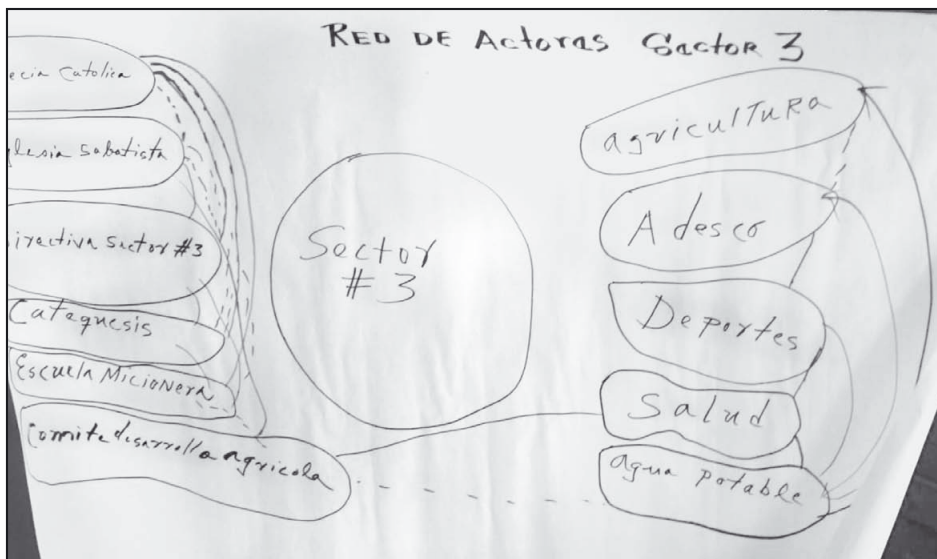 RED DE ActoRas Sector 3
ecia catolica
glesia Sabatista
iractiva Sactor #3
Catequesis
Escuela MicioNera
comite desarrolla agricola
Sector
#3
agriculTuRa
Adesco
Deportes
Salud
agua potable